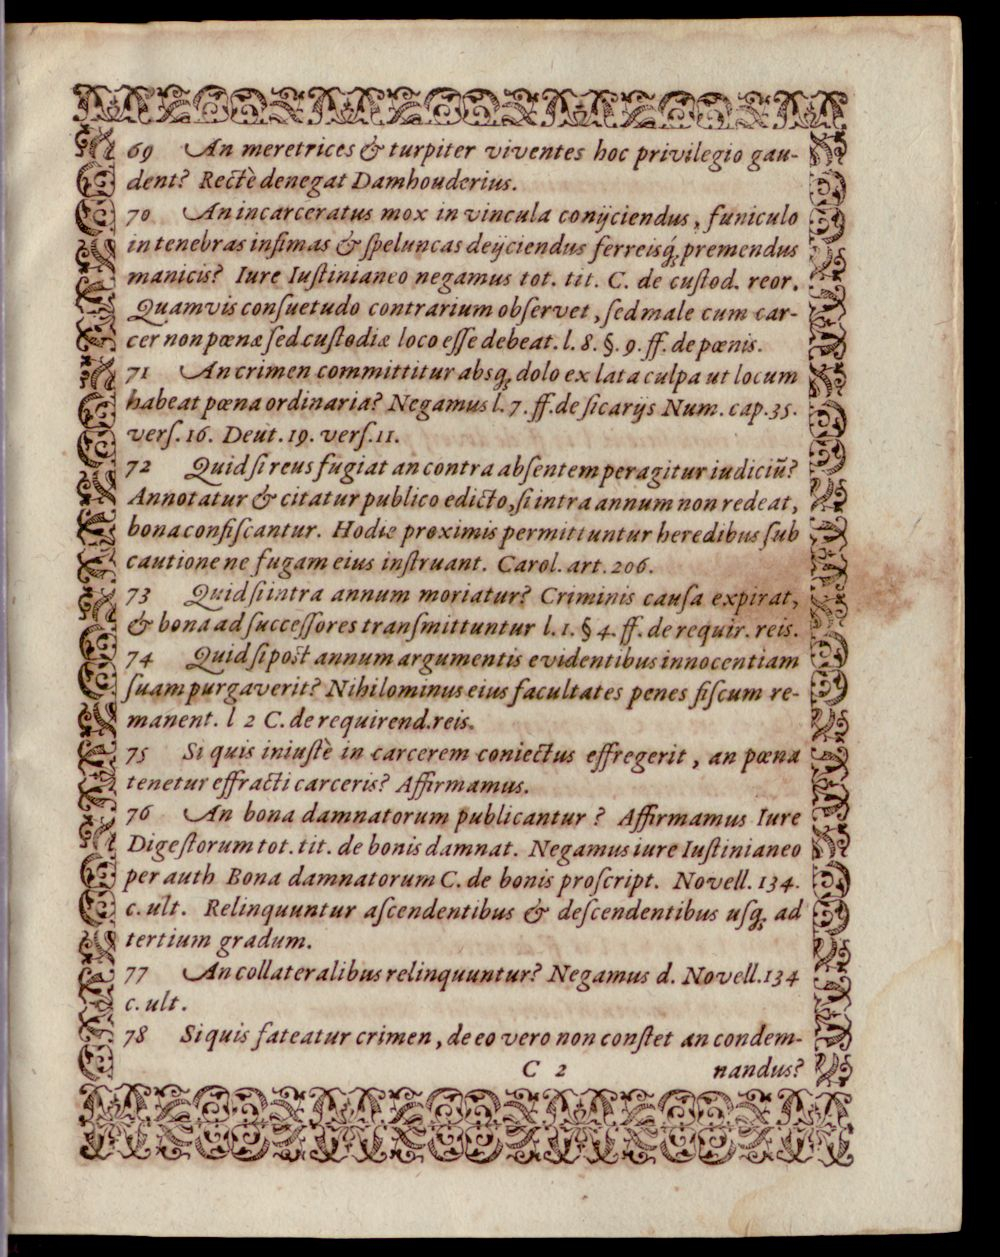 69 An meretrices & turpiter viventes hoc privilegio gau-
dent? Rectè denegat Damhouderius.
70 An incarceratus mox in vincula conijciendus, funiculo
in tenebras infimas & ſpeluncas deijciendus ferreisq́; premendus
manicis? Iure Iuſtinianeo negamus tot. tit. C. de cuſtod. reor.
Quamvis conſuetudo contrarium obſervet, ſed male cum car-
cer non pœnæ ſed cuſtodiæ loco eſſe debeat. l. 8. §. 9. ff. de pœnis.
71 An crimen committitur absq; dolo ex lata culpa ut locum
habeat pœna ordinaria? Negamus l. 7. ff. de ſicarijs Num. cap. 35.
verſ. 16. Deut. 19. verſ. 11.
72 Quid ſi reus fugiat an contra abſentem peragitur iudiciū?
Annotatur & citatur publico edicto, ſi intra annum non redeat,
bona confiſcantur. Hodie proximis permittuntur heredibus ſub
cautione ne fugam eius inſtruant. Carol. art. 206.
73 Quid ſi intra annum moriatur? Criminis cauſa expirat,
& bona ad ſucceſſores tranſmittuntur l. 1. § 4. ff. de requir. reis.
74 Quid ſi post annum argumentis evidentibus innocentiam
ſuam purgaverit? Nihilominus eius facultates penes fiſcum re-
manent. l 2 C. de requirend. reis.
75 Si quis iniuſtè in carcerem coniectus effregerit, an pœna
tenetur effracti carceris? Affirmamus.
76 An bona damnatorum publicantur? Affirmamus Iure
Digeſtorum tot. tit. de bonis damnat. Negamus iure Iuſtinianeo
per auth Bona damnatorum C. de bonis proſcript. Novell. 134.
c. ult. Relinquuntur aſcendentibus & deſcendentibus uſq; ad
tertium gradum.
77 An collateralibus relinquuntur? Negamus d. Novell. 134
c. ult.
78 Si quis fateatur crimen, de eo vero non conſtet an condem-
C 2 nandus?